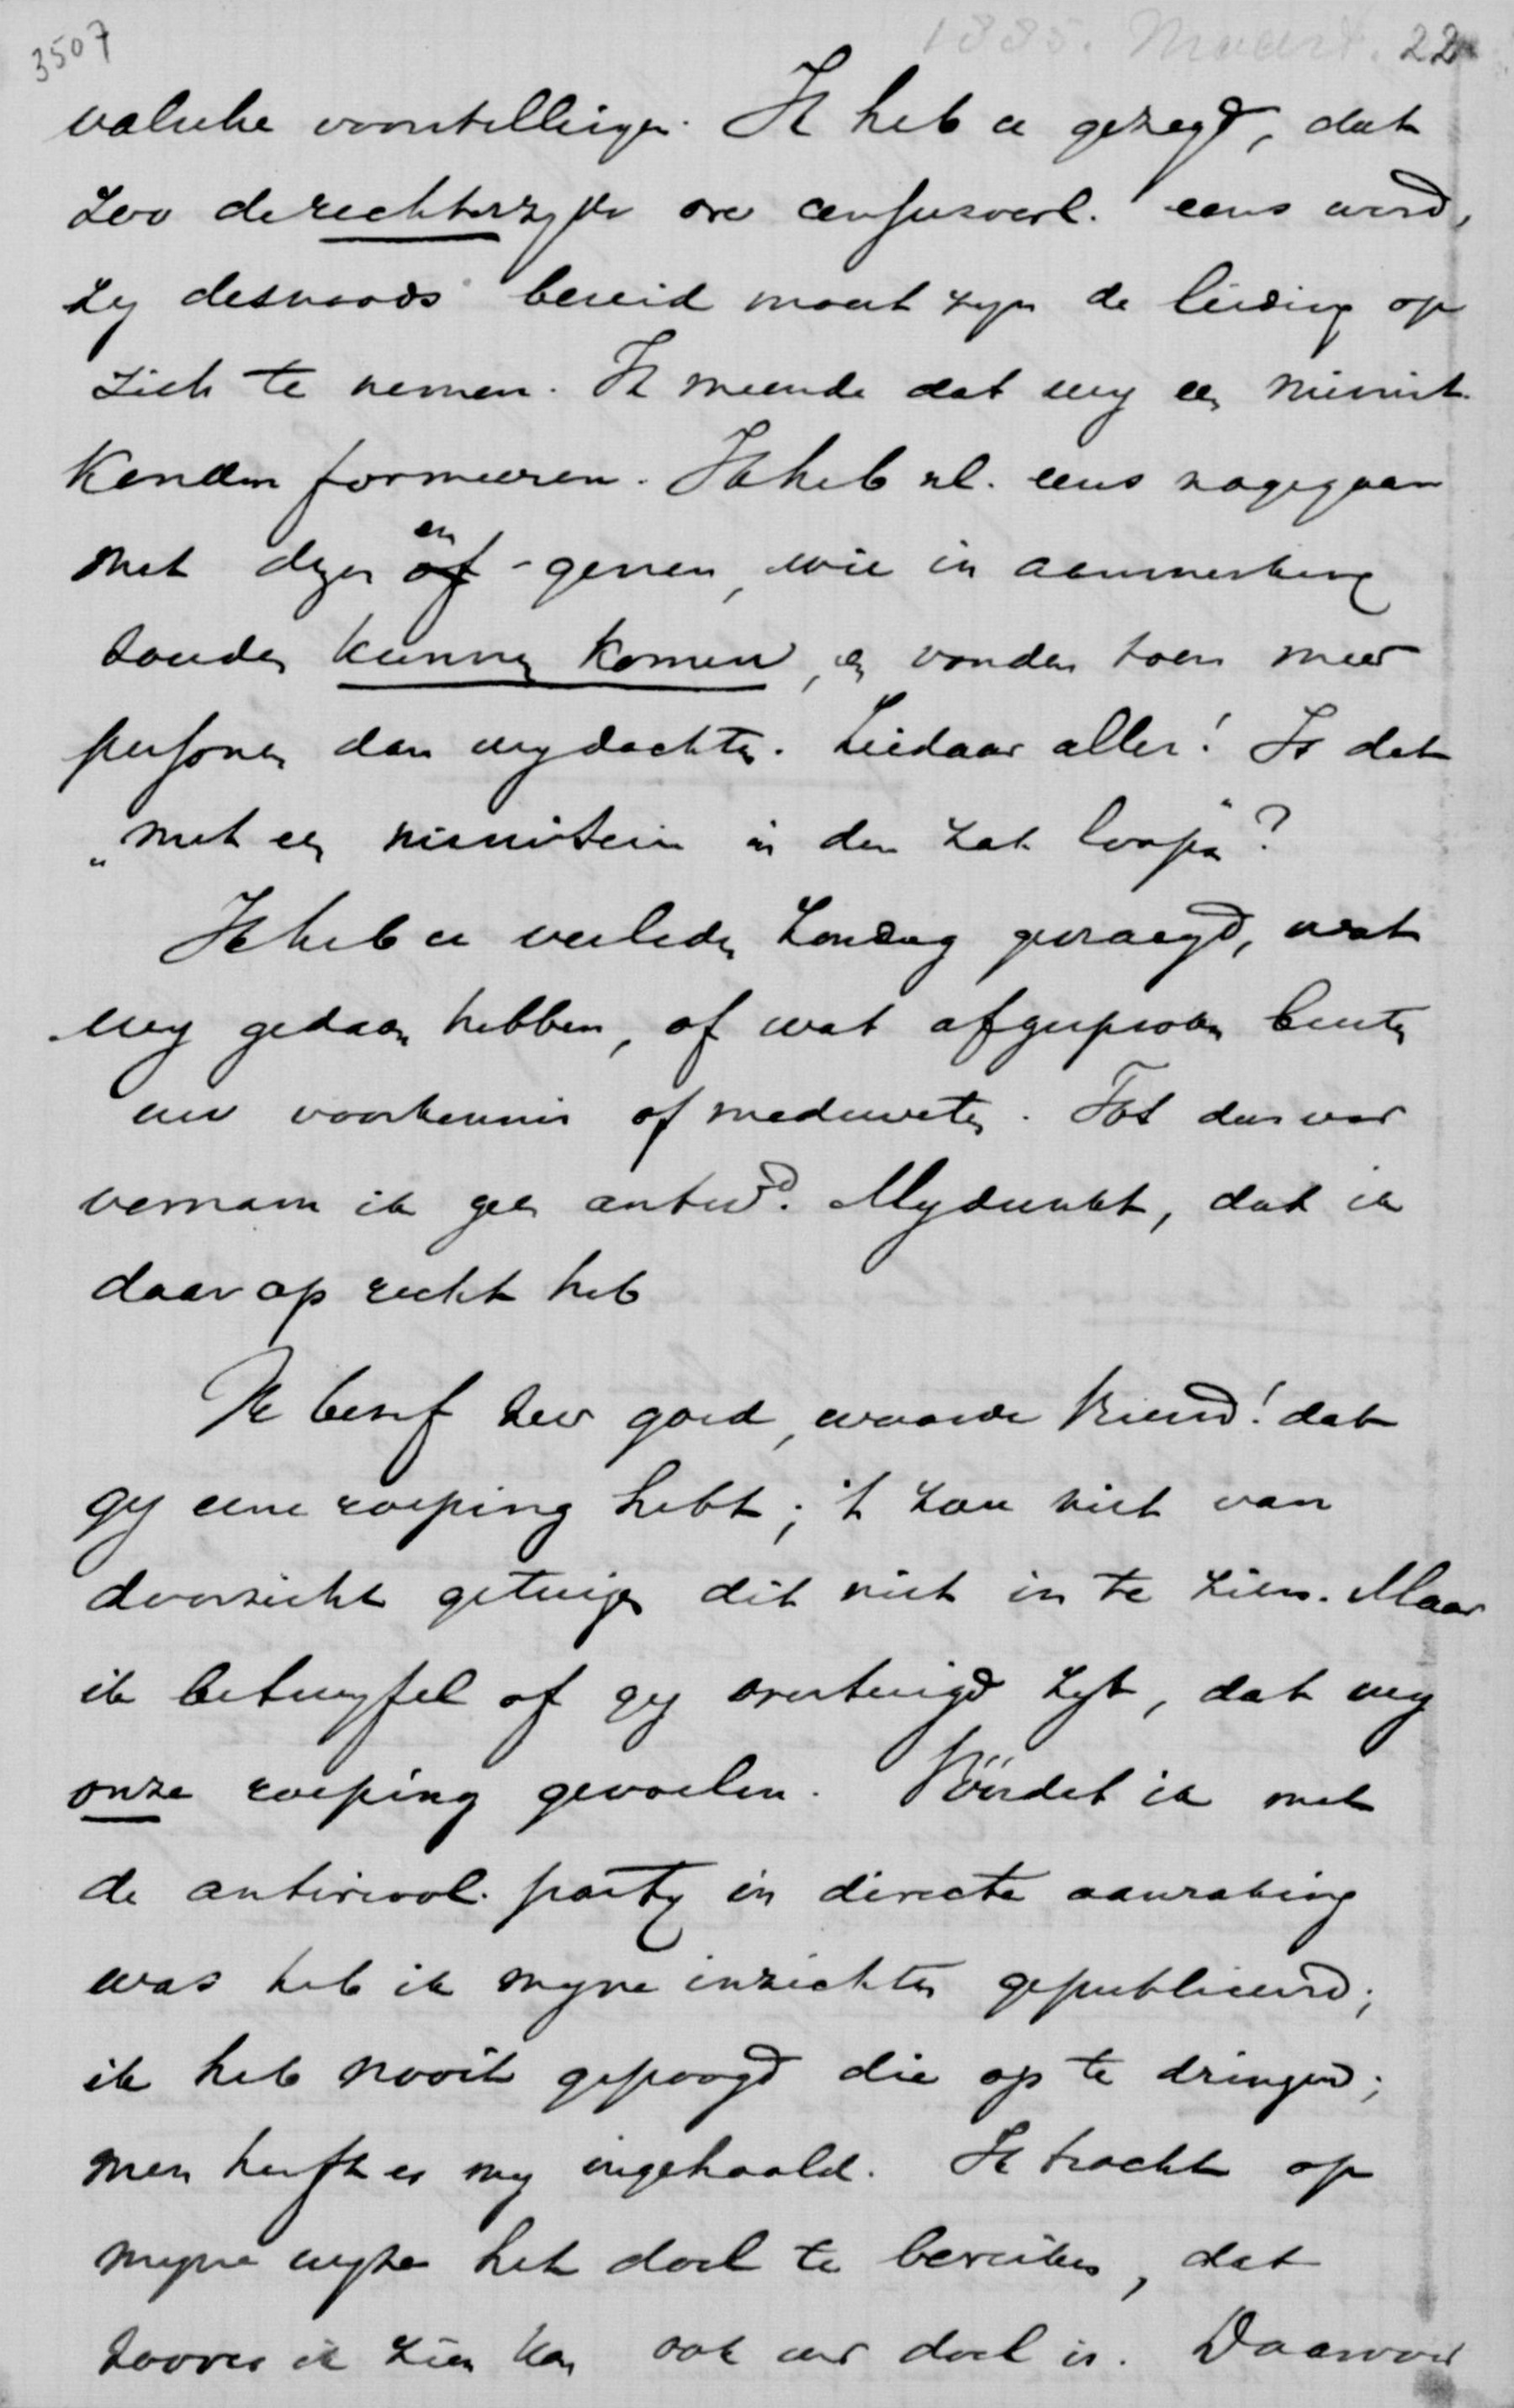 3507
1885. Maart. 22
valsche voorstellingen. Ik heb u gezegd, dat
zoo de rechterzyde over censusverl. eens werd,
zy desnoods bereid moest zyn de leiding op
zich te nemen. Ik meende dat wy een minist.
konden formeeren. Ik heb nl. eens nagegaan
met dezen of en -genen, wie in aanmerking
zouden kunnen komen, en vonden toen meer
personen dan wy dachten. Ziedaar alles! Is dat
"met een ministerie in den zak loopen"?
Ik heb u verleden Zondag gevraagd, wat
wy gedaan hebben, of wat afgesproken buiten
uw voorkennis of medeweten. Tot dusver
vernam ik geen antwd. My dunkt, dat ik
daarop recht heb
Ik besef zeer goed, waarde Vriend! dat
gy eene roeping hebt; 't zou niet van
doorzicht getuigen dit niet in te zien. Maar
ik betwyfel of gy overtuigd zyt, dat wy
onze roeping gevoelen. Vóórdat ik met
de antirevol. party in directe aanraking
was heb ik myne inzichten gepubliceerd;
ik heb nooit gepoogd die op te dringen;
men heeft er my ingehaald. Ik tracht op
myne wyze het doel te bereiken, dat
zoover ik zien kan ook uw doel is. Daarvoor